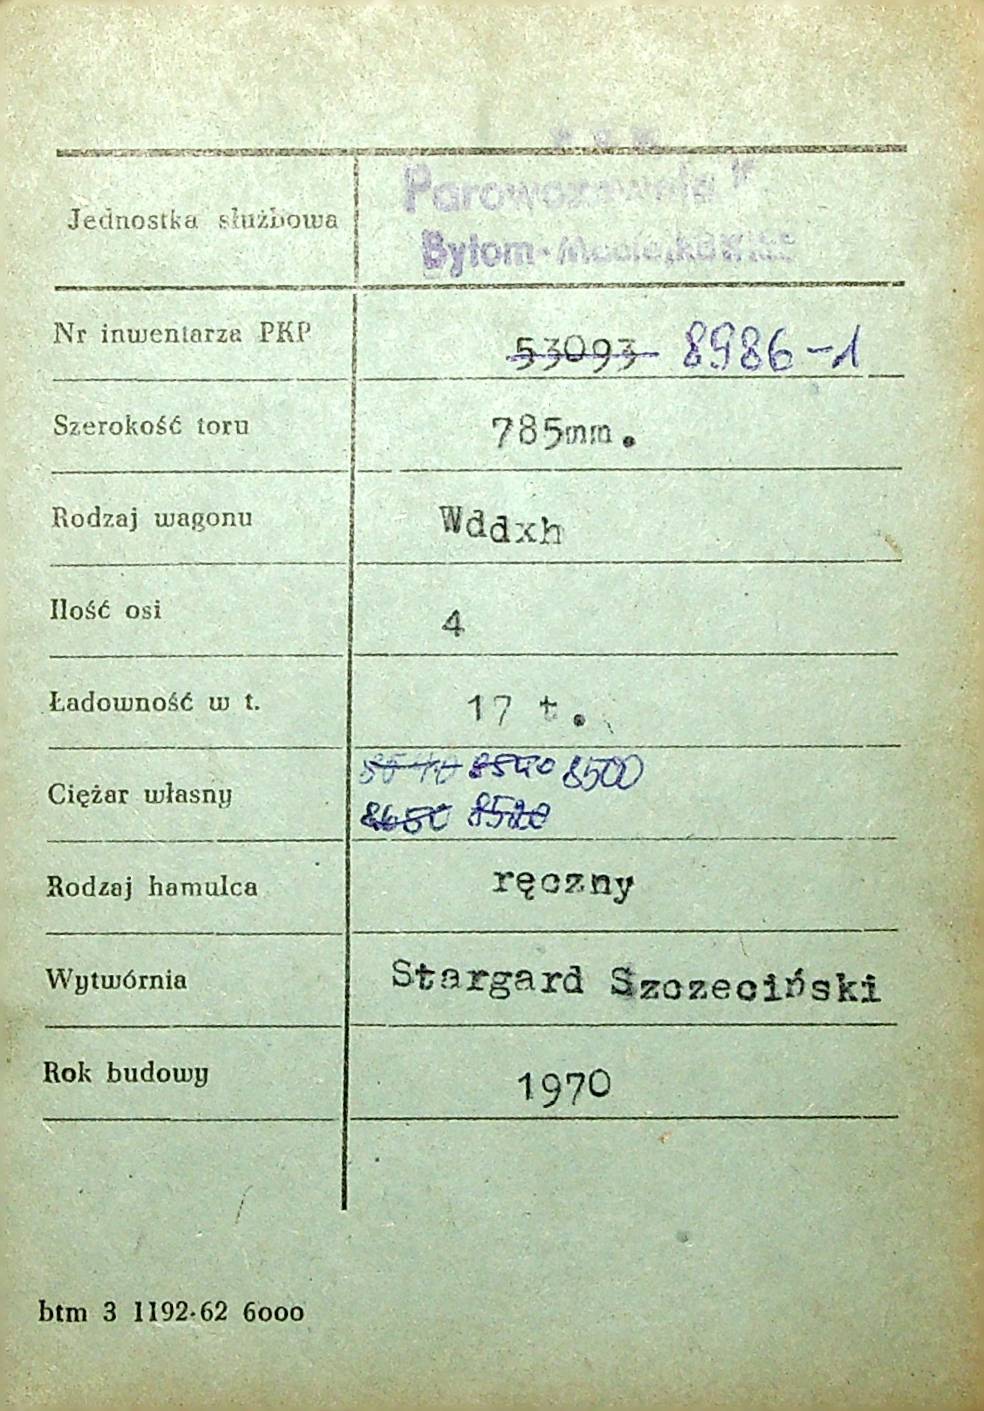 Jednostka służbowa
Parowozownia
Bytom-Maciejkowice
Nr inwentarza PKP 53093 8986-1
Szerokość toru 785mm.
Rodzaj wagonu Wddxh
Ilość osi 4
Ładowność w t. 17 t.
8540 8500
Ciężar własny
8650 8520
Rodzaj hamulca ręczny
Wytwórnia Stargard Szczeciński
Rok budowy 1970
btm 3 1192-62 6000